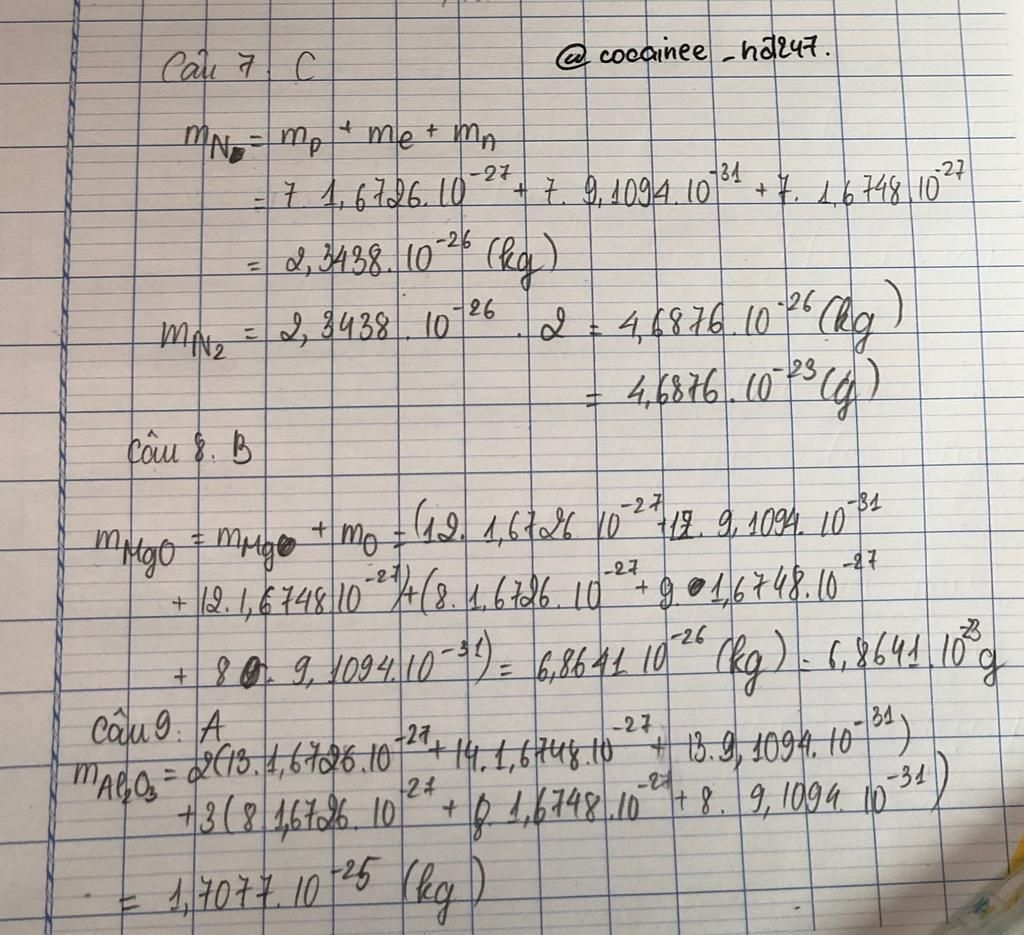 Câu 7. C
@cocainee_nd247.
mN = mp + me + mn
= 7. 1,6726.10^-27 + 7. 9,1094.10^-31 + 7. 1,6748.10^-27
= 2,3438.10^-26 (kg)
mN2 = 2,3438.10^-26 . 2 = 4,6876.10^-26 (kg)
= 4,6876.10^-23 (g)
Câu 8. B
mMgO = mMg + mO = (12. 1,6726.10^-27 + 12. 9,1094.10^-31
+ 12.1,6748.10^-27) + (8.1,6726.10^-27 + 9.1,6748.10^-27
+ 8. 9,1094.10^-31) = 6,8641.10^-26 (kg) = 6,8641.10^-23 g
Câu 9: A
mAl2O3 = 2(13.1,6726.10^-27 + 14.1,6748.10^-27 + 13.9,1094.10^-31)
+ 3(8.1,6726.10^-27 + 8.1,6748.10^-27 + 8. 9,1094.10^-31)
= 1,7077.10^-25 (kg)